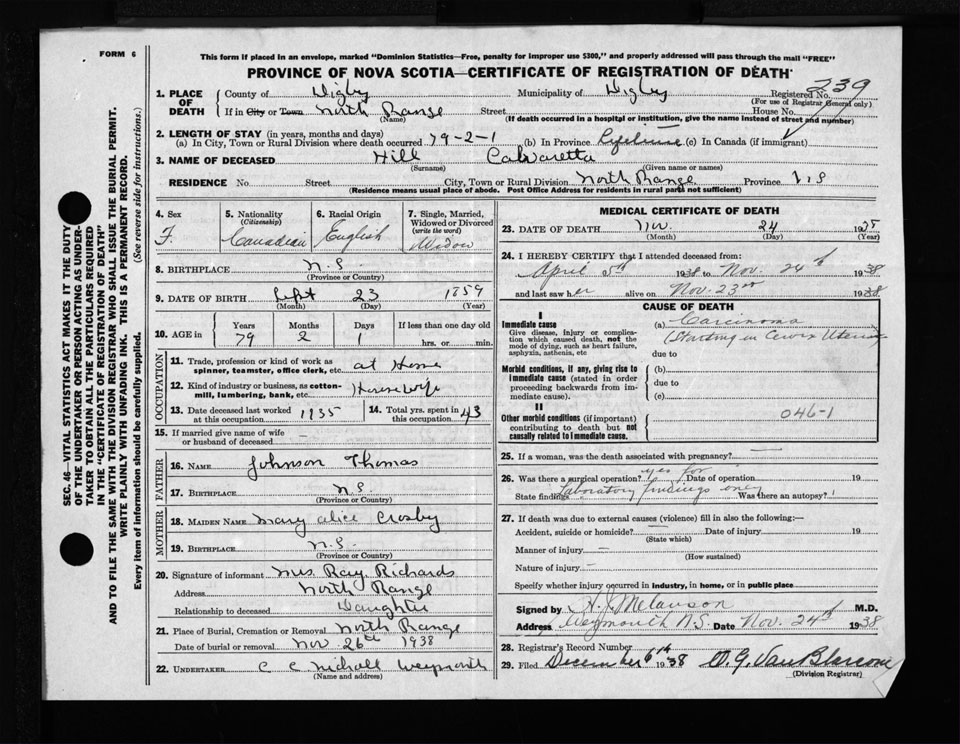 FORM 6
This form if placed in an envelope, marked "Dominion Statistics—Free, penalty for improper use $300," and properly addressed will pass through the mail "FREE"
PROVINCE OF NOVA SCOTIA—CERTIFICATE OF REGISTRATION OF DEATH
1. PLACE OF DEATH { County of Digby Municipality of Digby Registered No. 239
(For use of Registrar General only)
If in City or Town North Range Street House No.
(Name) (If death occurred in a hospital or institution, give the name instead of street and number)
2. LENGTH OF STAY (in years, months and days)
(a) In City, Town or Rural Division where death occurred 79-2-1 (b) In Province Lifetime (c) In Canada (if immigrant)
3. NAME OF DECEASED Hill Calvaretta
(Surname) (Given name or names)
RESIDENCE No. Street City, Town or Rural Division North Range Province N S
(Residence means usual place of abode. Post Office Address for residents in rural parts not sufficient)
4. Sex F.
5. Nationality (Citizenship) Canadian
6. Racial Origin English
7. Single, Married, Widowed or Divorced (write the word) Widow
8. BIRTHPLACE N.S.
(Province or Country)
9. DATE OF BIRTH Sept 23 1859
(Month) (Day) (Year)
10. AGE in Years Months Days If less than one day old
79 2 1 hrs. or min.
OCCUPATION
11. Trade, profession or kind of work as spinner, teamster, office clerk, etc. at Home
12. Kind of industry or business, as cotton-mill, lumbering, bank, etc. Housewife
13. Date deceased last worked at this occupation. 1935
14. Total yrs. spent in this occupation 43
15. If married give name of wife or husband of deceased —
FATHER
16. NAME Johnson Thomas
17. BIRTHPLACE N.S.
(Province or Country)
MOTHER
18. MAIDEN NAME Mary Alice Crosby
19. BIRTHPLACE N.S.
(Province or Country)
20. Signature of informant Mrs. Ray Richards
Address North Range
Relationship to deceased Daughter
21. Place of Burial, Cremation or Removal North Range
Date of burial or removal Nov 26th 1938
22. UNDERTAKER C C Nichall Weymouth
(Name and address)
MEDICAL CERTIFICATE OF DEATH
23. DATE OF DEATH Nov. 24 19
(Month) (Day) (Year)
24. I HEREBY CERTIFY that I attended deceased from:
April 1938 to Nov. 24th 1938
and last saw her alive on Nov. 23rd 1938
CAUSE OF DEATH
I
Immediate cause (a) Carcinoma
Give disease, injury or complication which caused death, not the mode of dying, such as heart failure, asphyxia, asthenia, etc (Starting in Cervix Uterine)
due to
Morbid conditions, if any, giving rise to immediate cause (stated in order proceeding backwards from immediate cause). (b)
due to
(c)
II
Other morbid conditions (if important) contributing to death but not causally related to immediate cause. 046-1
25. If a woman, was the death associated with pregnancy? —
26. Was there a surgical operation? yes for Date of operation 19
State findings Laboratory findings only Was there an autopsy?
27. If death was due to external causes (violence) fill in also the following:—
Accident, suicide or homicide? — Date of injury 19
(State which)
Manner of injury —
(How sustained)
Nature of injury —
Specify whether injury occurred in industry, in home, or in public place
Signed by H. J. Melanson M.D.
Address Weymouth N.S. Date Nov. 24th 1938
28. Registrar's Record Number
29. Filed December 6th 1938 O. G. Van Blarcom
(Division Registrar)
SEC. 46—VITAL STATISTICS ACT MAKES IT THE DUTY
OF THE UNDERTAKER OR PERSON ACTING AS UNDER-
TAKER TO OBTAIN ALL THE PARTICULARS REQUIRED
IN THE "CERTIFICATE OF REGISTRATION OF DEATH"
AND TO FILE THE SAME WITH THE DIVISION REGISTRAR WHO SHALL ISSUE THE BURIAL PERMIT.
WRITE PLAINLY WITH UNFADING INK. THIS IS A PERMANENT RECORD.
Every item of information should be carefully supplied. (See reverse side for instructions.)